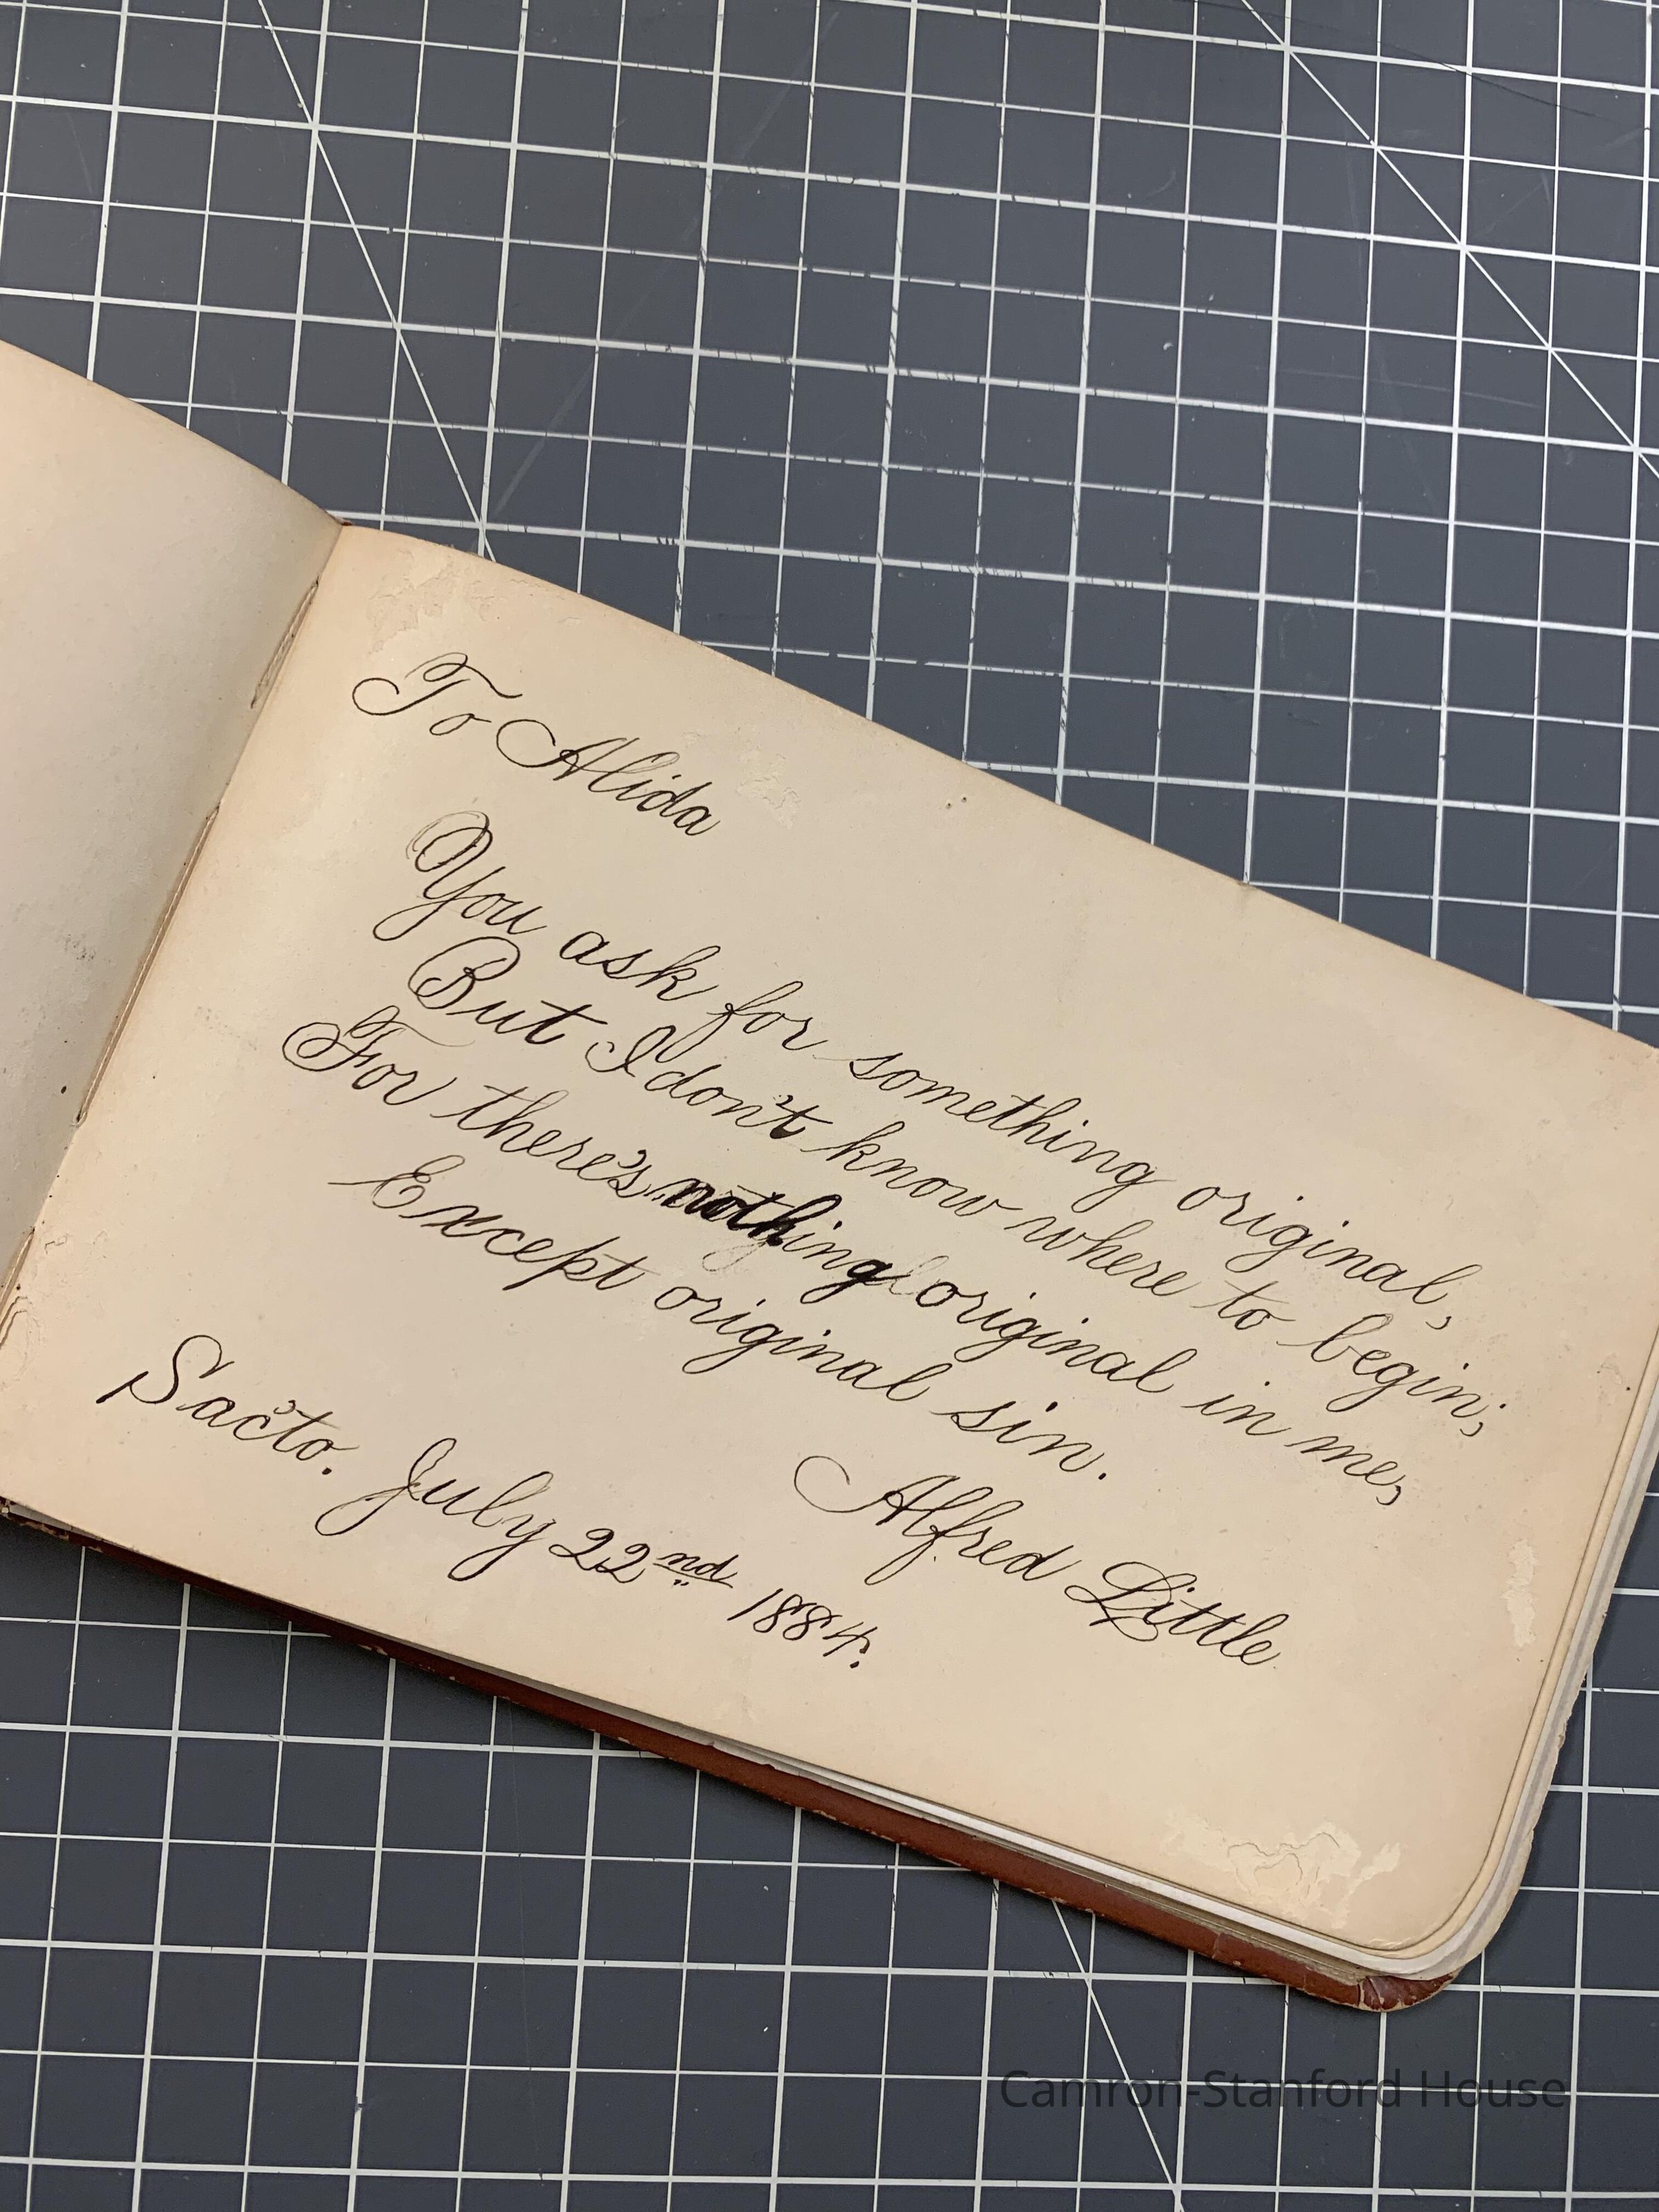 To Alida
You ask for something original,
But I don't know where to begin;
For there's nothing original in me,
Except original sin.
Alfred Little
Sac'to. July 22nd 1884.
Camron-Stanford House